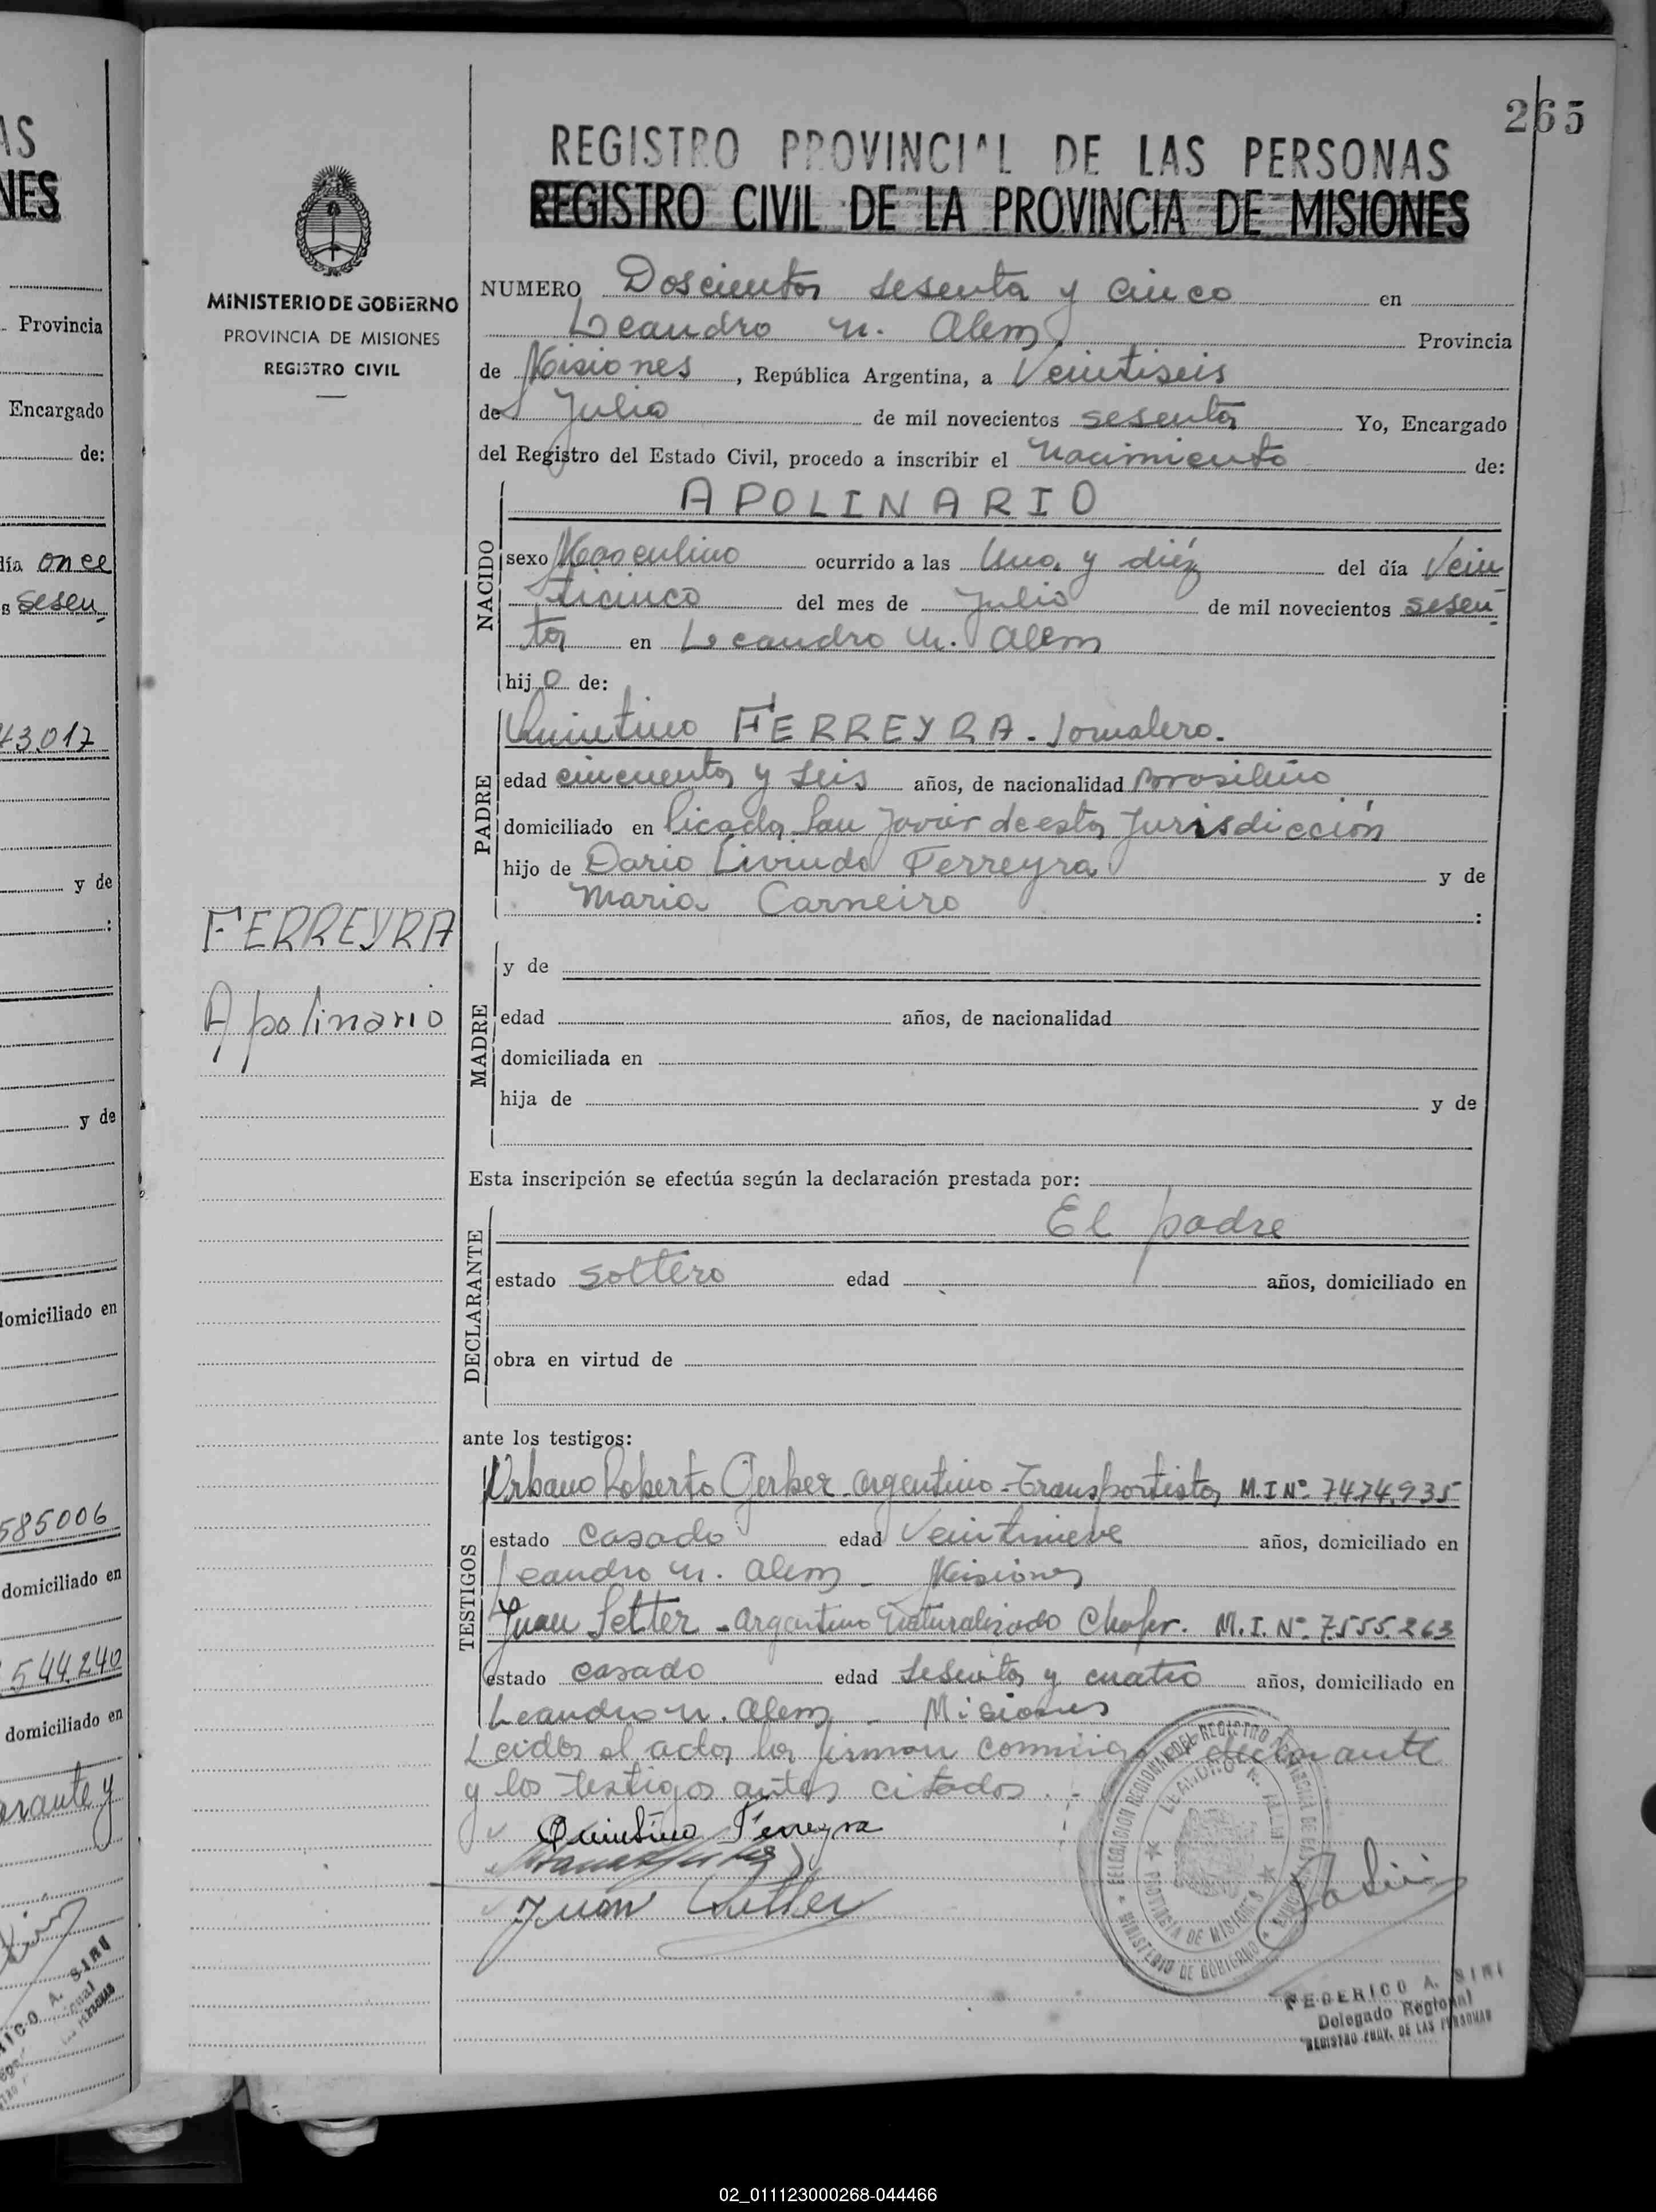 265
REGISTRO PROVINCIAL DE LAS PERSONAS
REGISTRO CIVIL DE LA PROVINCIA DE MISIONES
MINISTERIO DE GOBIERNO
PROVINCIA DE MISIONES
REGISTRO CIVIL
NUMERO Doscientos sesenta y cinco en
Leandro N. Alem Provincia
de Misiones, República Argentina, a Veintiseis
de Julio de mil novecientos sesenta Yo, Encargado
del Registro del Estado Civil, procedo a inscribir el Nacimiento de:
NACIDO
APOLINARIO
sexo Masculino ocurrido a las Una y diéz del día Vein
ticinco del mes de Julio de mil novecientos sesen
ta en Leandro N. Alem
hijo de:
PADRE
Quintino FERREYRA - Jornalero.
edad cincuenta y seis años, de nacionalidad Brasileño
domiciliado en Picada San Javier de esta Jurisdicción
hijo de Dario Livindo Ferreyra y de
Maria Carneiro :
FERREYRA
Apolinario
MADRE
y de
edad años, de nacionalidad
domiciliada en
hija de y de
Esta inscripción se efectúa según la declaración prestada por:
DECLARANTE
El padre
estado soltero edad años, domiciliado en
obra en virtud de
ante los testigos:
TESTIGOS
Urbano Roberto Gerber - argentino - Transportista M.I Nº 7474.935
estado casado edad Veintinueve años, domiciliado en
Leandro N. Alem - Misiones
Juan Setter - argentino Naturalizado Chofer. M.I. Nº 7.555.263
estado casado edad sesenta y cuatro años, domiciliado en
Leandro N. Alem - Misiones
Leida el acta, la firman conmigo el declarante
y los testigos antes citados.-
Quintino Ferreyra
Juan Setter
DELEGACION REGIONAL DEL REGISTRO PROVINCIAL DE LAS PERSONAS
MINISTERIO DE GOBIERNO
LEANDRO N. ALEM
PROVINCIA DE MISIONES
FEDERICO A. SIRI
Delegado Regional
REGISTRO PROV. DE LAS PERSONAS
02_011123000268-044466